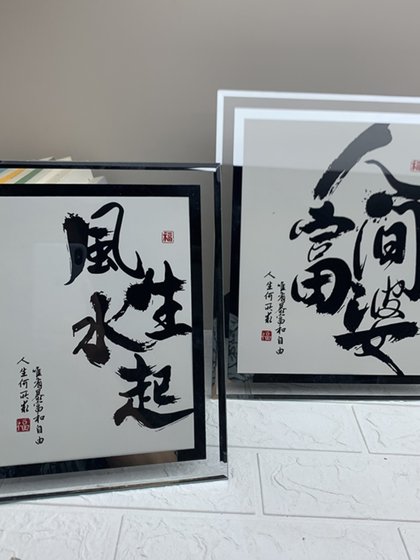 風生水起
福
人生何所求
唯有暴富和自由
福
人間富婆
福
人生何所求
唯有暴富和自由
福